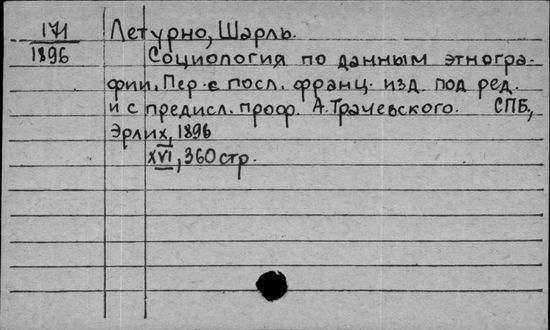 171 Летурно, Шарль.
1896 Социология по данным этногра-
фии. Пер. с посл. франц. изд. под ред.
и с предисл. проф. А. Трачевского. СПБ,
Эрлих, 1896
XVI, 360 стр.